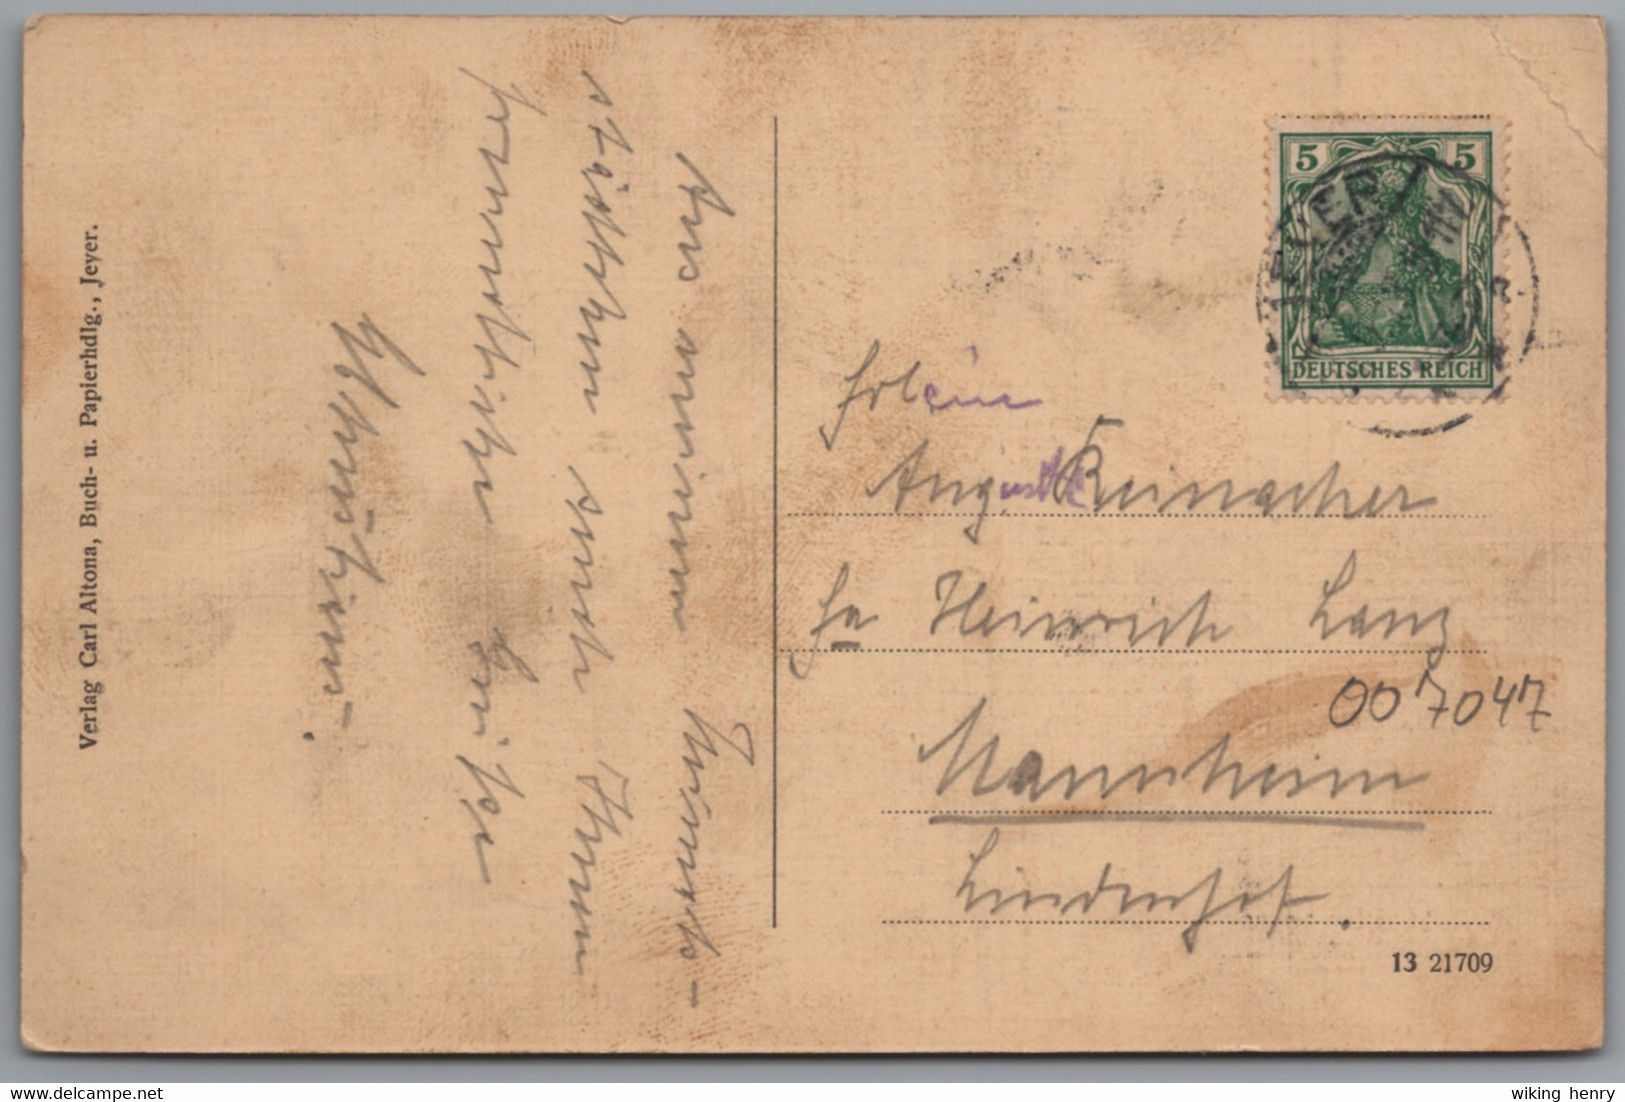 Verlag Carl Altona, Buch- u. Papierhdlg., Jever.
Aus meinem Heimats-
städtchen sende Ihnen
herzlichen
5 5
DEUTSCHES REICH
JEVER
Frlein
Auguste Reinacher
Fa Heinrich Lanz
007047
Mannheim
Lindenhof.
13 21709
wiking henry